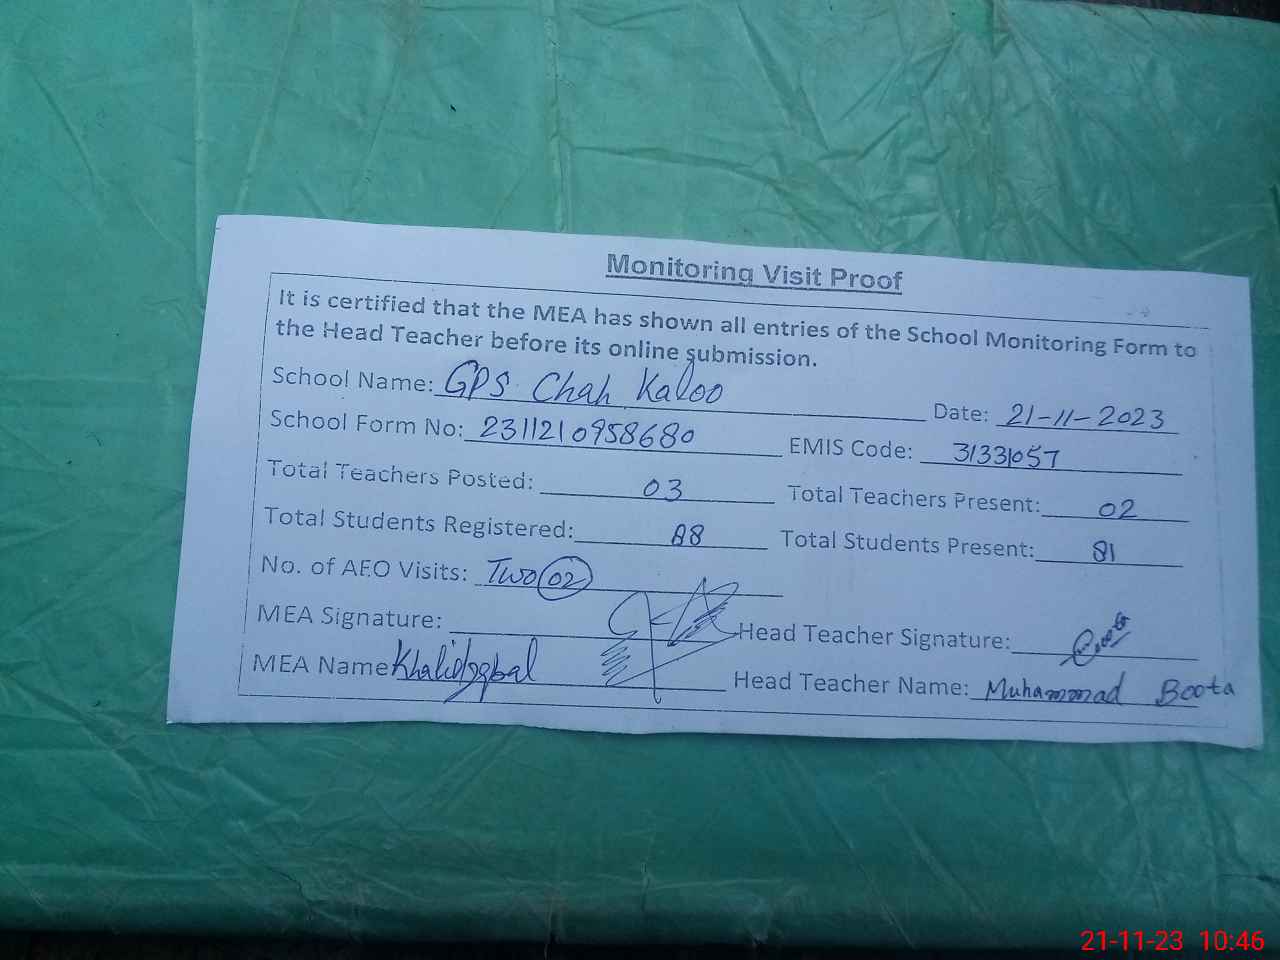 Monitoring Visit Proof
It is certified that the MEA has shown all entries of the School Monitoring Form to
the Head Teacher before its online submission.
School Name: GPS Chah Kaloo Date: 21-11-2023
School Form No: 2311210958680 EMIS Code: 31331057
Total Teachers Posted: 03 Total Teachers Present: 02
Total Students Registered: 88 Total Students Present: 81
No. of AEO Visits: Two 02
MEA Signature: Head Teacher Signature:
MEA Name Khalid Iqbal Head Teacher Name: Muhammad Boota
21-11-23 10:46